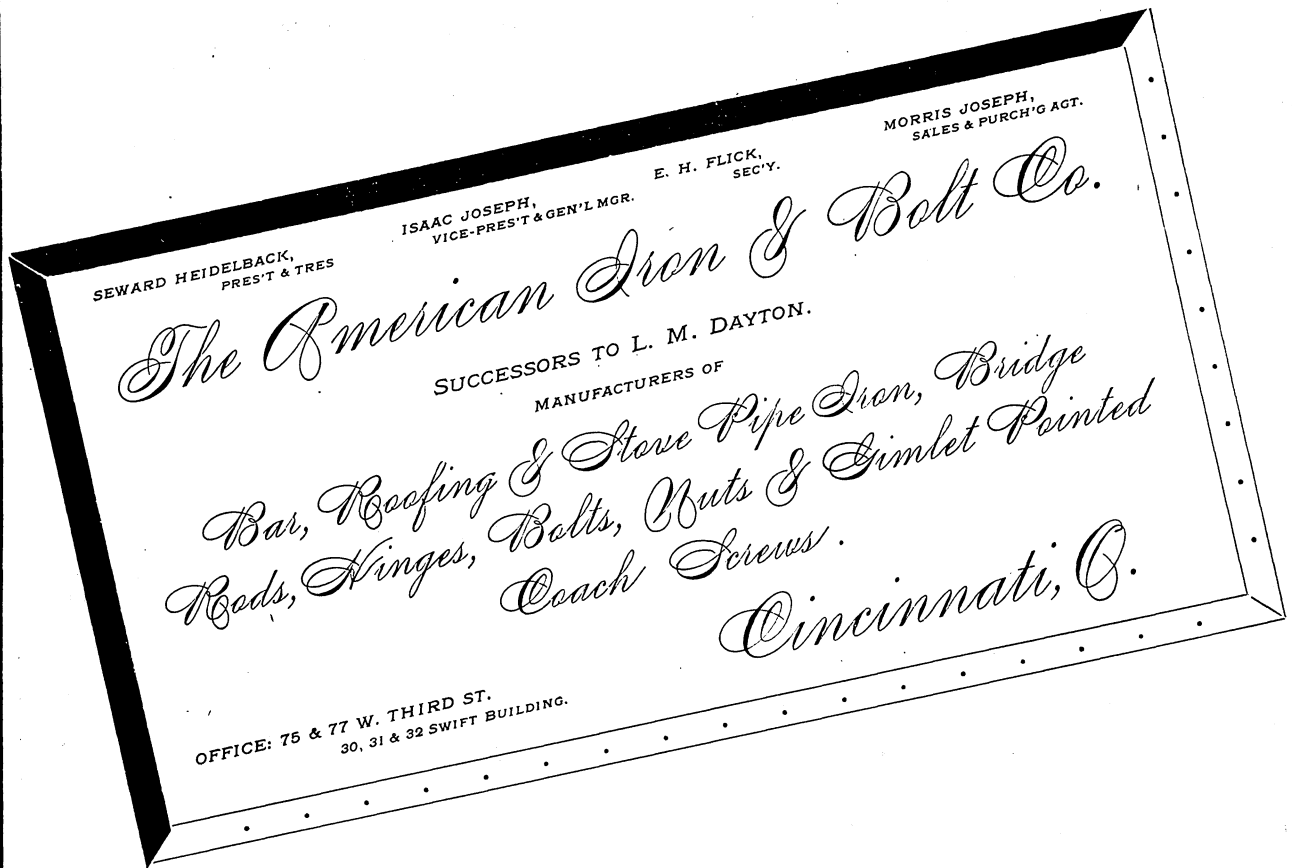 SEWARD HEIDELBACK,
PRES'T & TRES
ISAAC JOSEPH,
VICE-PRES'T & GEN'L MGR.
E. H. FLICK,
SEC'Y.
MORRIS JOSEPH,
SALES & PURCH'G AGT.
The American Iron & Bolt Co.
SUCCESSORS TO L. M. DAYTON.
MANUFACTURERS OF
Bar, Roofing & Stove Pipe Iron, Bridge
Rods, Hinges, Bolts, Nuts & Gimlet Pointed
Coach Screws.
Cincinnati, O.
OFFICE: 75 & 77 W. THIRD ST.
30, 31 & 32 SWIFT BUILDING.